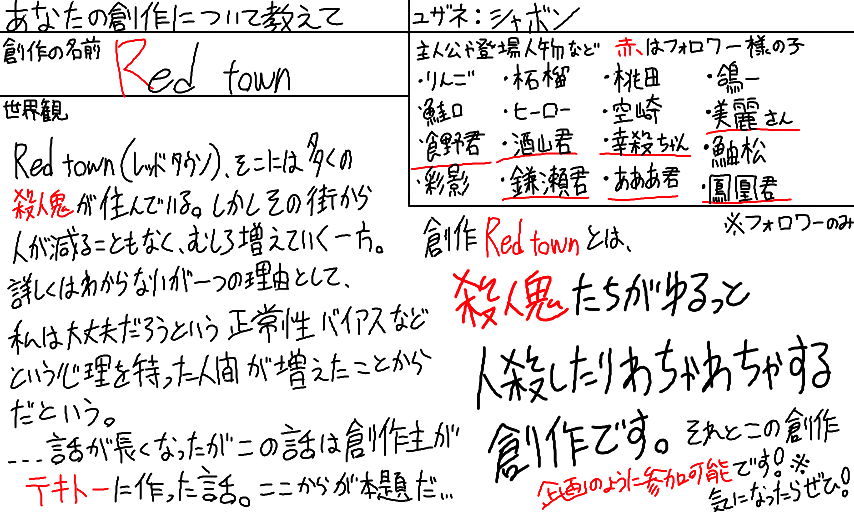 あなたの創作について教えて
ユザネ：シャボン
創作の名前
Red town
主人公や登場人物など 赤、はフォロワー様の子
・りんご ・柘榴 ・桃田 ・鴿一
・鮭口 ・ヒーロー ・空崎 ・美麗さん
・食野君 ・酒山君 ・幸殺ちゃん ・鮋松
・彩影 ・鎌瀬君 ・あああ君 ・鳳凰君
※フォロワーのみ
世界観
Red town(レッドタウン)、そこには多くの
殺人鬼が住んでいる。しかしその街から
人が減ることもなく、むしろ増えていく一方。
詳しくはわからないが一つの理由として、
私は大丈夫だろうという正常性バイアスなど
という心理を持った人間が増えたことから
だという。
...話が長くなったがこの話は創作主が
テキトーに作った話。ここからが本題だ...
創作Red townとは、
殺人鬼たちがゆるっと
人殺したりわちゃわちゃする
創作です。それとこの創作
企画のように参加可能です！※
気になったらぜひ！